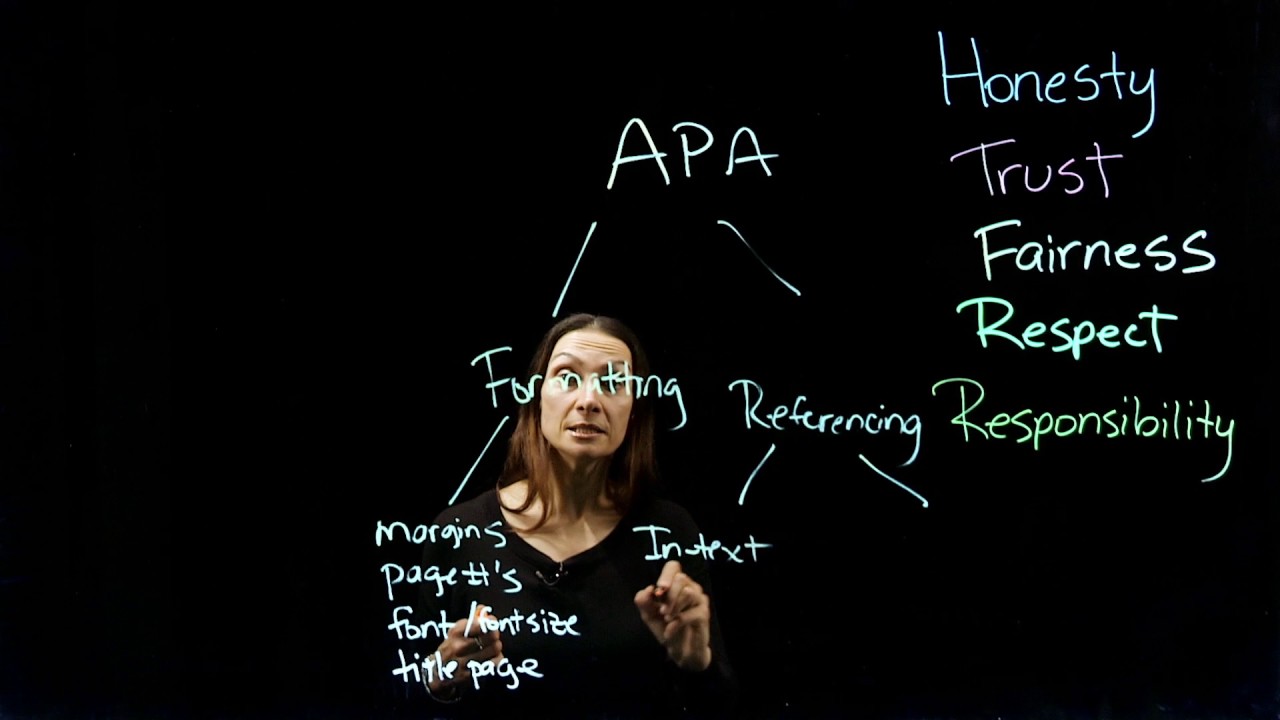 APA
Formatting
margins
page #'s
font/font size
title page
Referencing
In-text
Honesty
Trust
Fairness
Respect
Responsibility